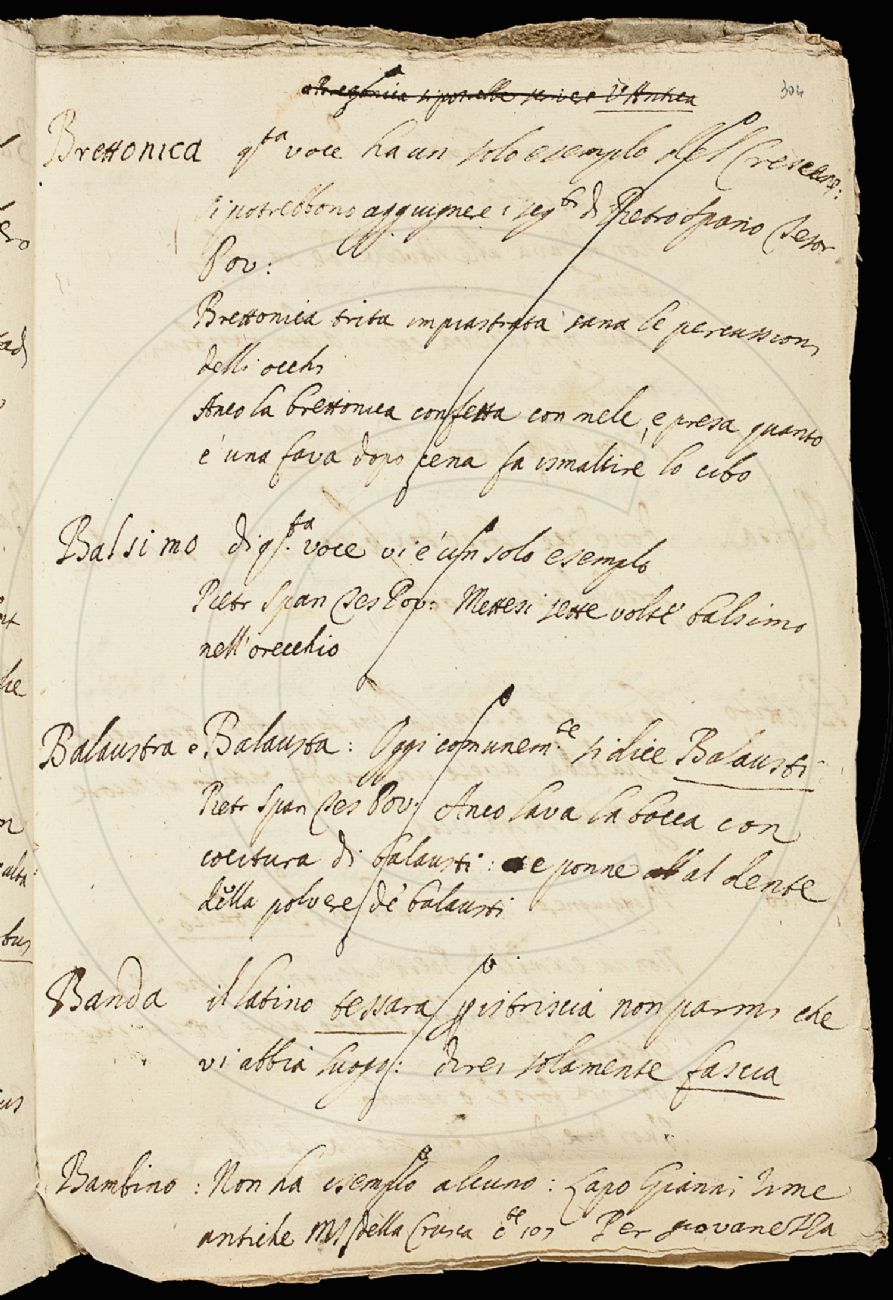 304
Brettonica q.sta voce ha un solo esempio del Cresc:
si potrebbono aggiugnere i seg.ti di Pietro Spano Tesor
Pov:
Brettonica trita impiastrata sana le percussioni
delli occhi
Anco la brettonica confetta con mele, e presa quanto
è una fava dopo cena fa ismaltire lo cibo
Balsimo di q.sta voce vi è un solo esempio
Pietr Span Tes Pov: Mettesi sette volte balsimo
nell'orecchio
Balaustra e Balausta: Oggi comunem.te si dice Balausti
Pietr Span Tes Pov: Anco lava la bocca con
cocitura di balausti: e ponne al dente
della polvere de' balausti
Banda il latino tessara p istriscia non parmi che
vi abbia luogo: direi solamente fascia
Bambino: Non ha esemplo alcuno: Lapo Gianni rime
antiche MS della Crusca Per giovanetta